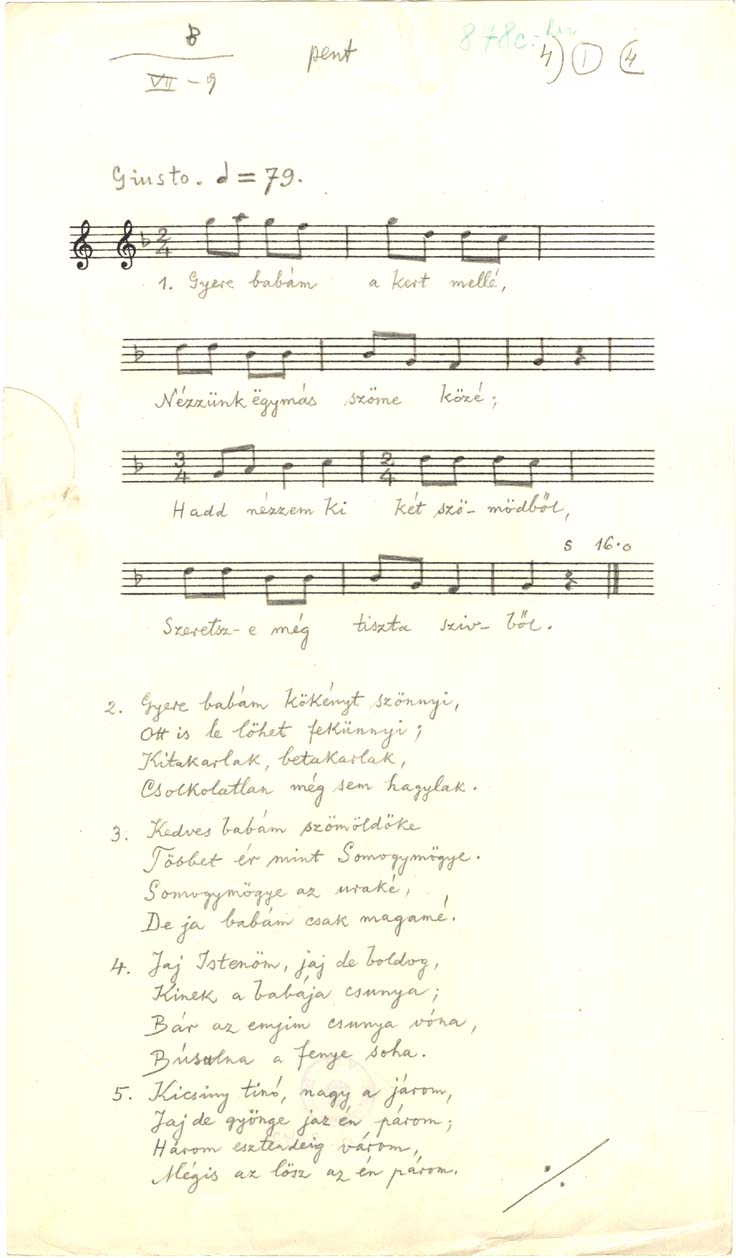 8
VII - 9
pent
878c.
4) 1 4
Giusto. d = 79.
2/4
1. Gyere babám a kert mellé,
Nézzünk ëgymás szöme közé;
3/4 2/4
Hadd nézzem ki két szö- mödből,
s 16·0
Szeretsz-e még tiszta sziv- ből.
2. Gyere babám kökényt szönnyi,
Ott is le löhet fekünnyi;
Kitakarlak, betakarlak,
Csolkolatlan még sem hagylak.
3. Kedves babám szömöldöke
Többet ér mint Somogymögye.
Somogymögye az uraké,
De ja babám csak magamé.
4. Jaj Istenöm, jaj de boldog,
Kinek a babája csunya;
Bár az emjim csunya vóna,
Búsulna a fenye soha.
5. Kicsiny tinó, nagy a járom,
Jaj de gyönge jaz én párom;
Három esztendeig várom,
Mégis az lösz az én párom.